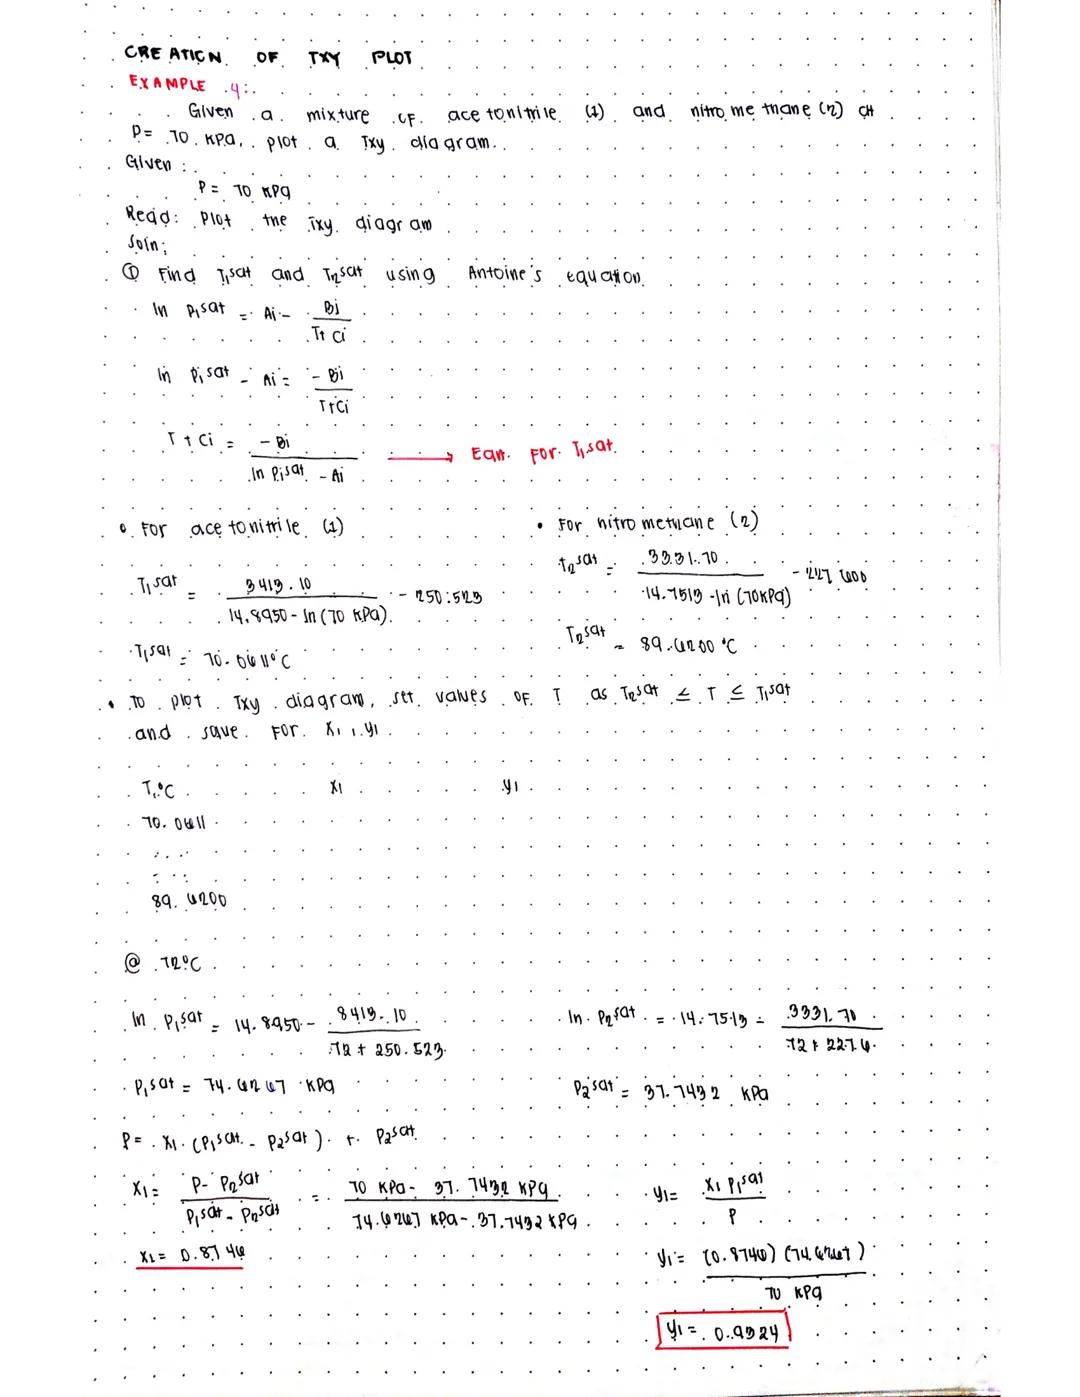 CREATION OF TXY PLOT
EXAMPLE 4:
Given a mixture of acetonitrile (1) and nitromethane (2) at
P= 70 KPa, plot a Txy diagram.
Given:
P= 70 KPa
Reqd: Plot the Txy diagram
Soln:
① Find T₁sat and T₂sat using Antoine's equation
ln Pᵢsat = Ai - Bi / T+Ci
ln Pᵢsat - Ai = -Bi / T+Ci
T + Ci = -Bi / ln Pᵢsat - Ai → Eqn. For Tᵢsat
• For acetonitrile (1)
T₁sat = 3413.10 / 14.8950 - ln (70 KPa) - 250.523
T₁sat = 70.0611°C
• For nitromethane (2)
T₂sat = 3331.70 / 14.7513 - ln (70KPa) - 227.600
T₂sat = 89.6200 °C
• To plot Txy diagram, set values of T as T₂sat ≤ T ≤ T₁sat
and solve for x₁, y₁
T,°C x₁ y₁
70.0611
....
....
89.6200
@ 72°C
ln P₁sat = 14.8950 - 3413.10 / 72 + 250.523
P₁sat = 74.6267 KPa
ln P₂sat = 14.7513 - 3331.70 / 72 + 227.6
P₂sat = 37.7432 KPa
P = x₁ (P₁sat - P₂sat) + P₂sat
x₁ = P - P₂sat / P₁sat - P₂sat = 70 KPa - 37.7432 KPa / 74.6267 KPa - 37.7432 KPa
x₁ = 0.8746
y₁ = x₁ P₁sat / P
y₁ = (0.8746) (74.6267) / 70 KPa
y₁ = 0.9324